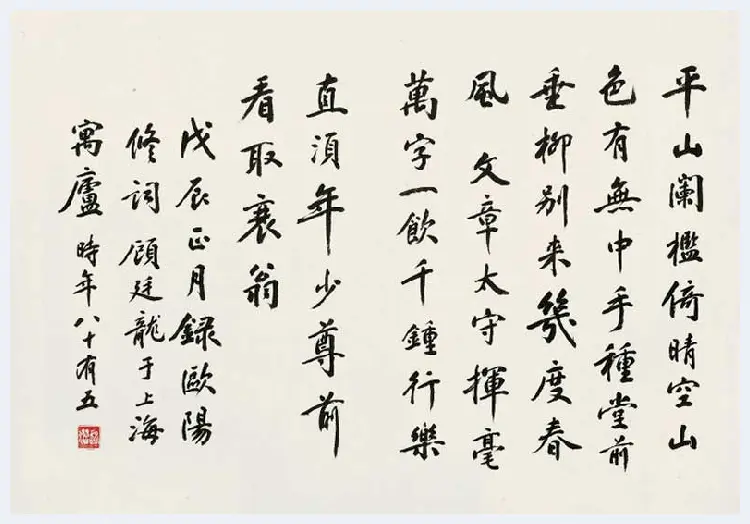 平山闌檻倚晴空山
色有無中手種堂前
垂柳別来幾度春
風 文章太守揮毫
萬字一飲千鍾行樂
直須年少尊前
看取衰翁
戊辰正月録歐陽
修詞 顧廷龍于上海
寓廬 時年八十有五